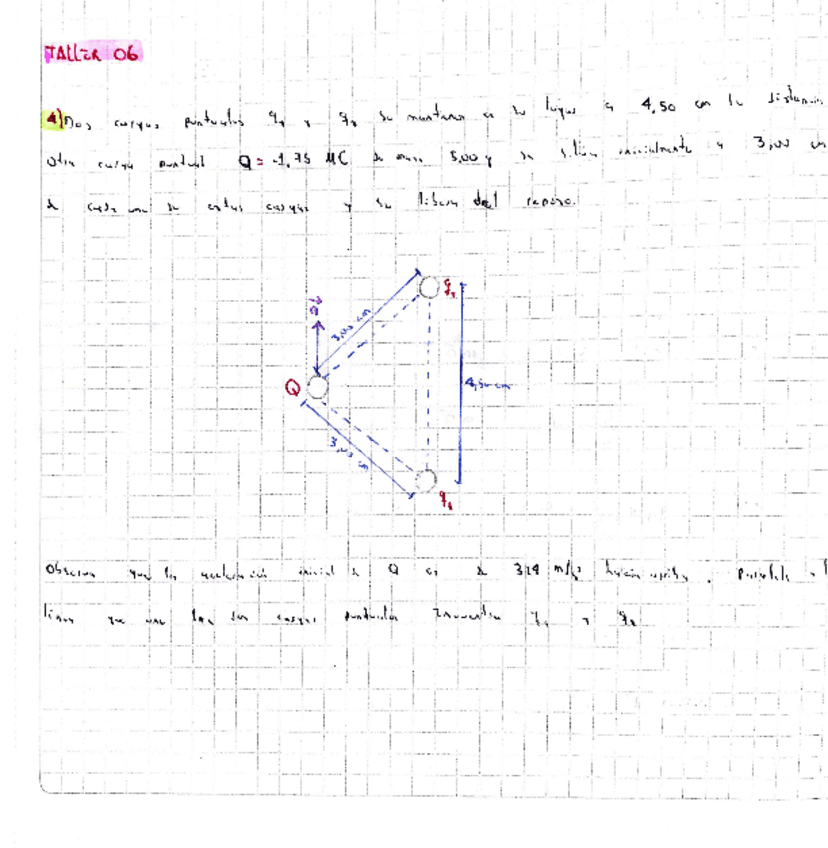 TALLER 06
4) Dos cargas puntuales q₁ y q₂ se mantienen en su lugar a 4,50 cm de distancia
Otra carga puntual Q = -1,75 μC de masa 5,00 g se sitúa inicialmente a 3,00 cm
de cada una de estas cargas y se libera del reposo.
q₂
3,00 cm
Q
4,50 cm
3,00 cm
q₁
Observa que la aceleración inicial de Q es de 324 m/s² hacia arriba, paralela a l
línea que une las dos cargas puntuales Encuentra q₁ y q₂